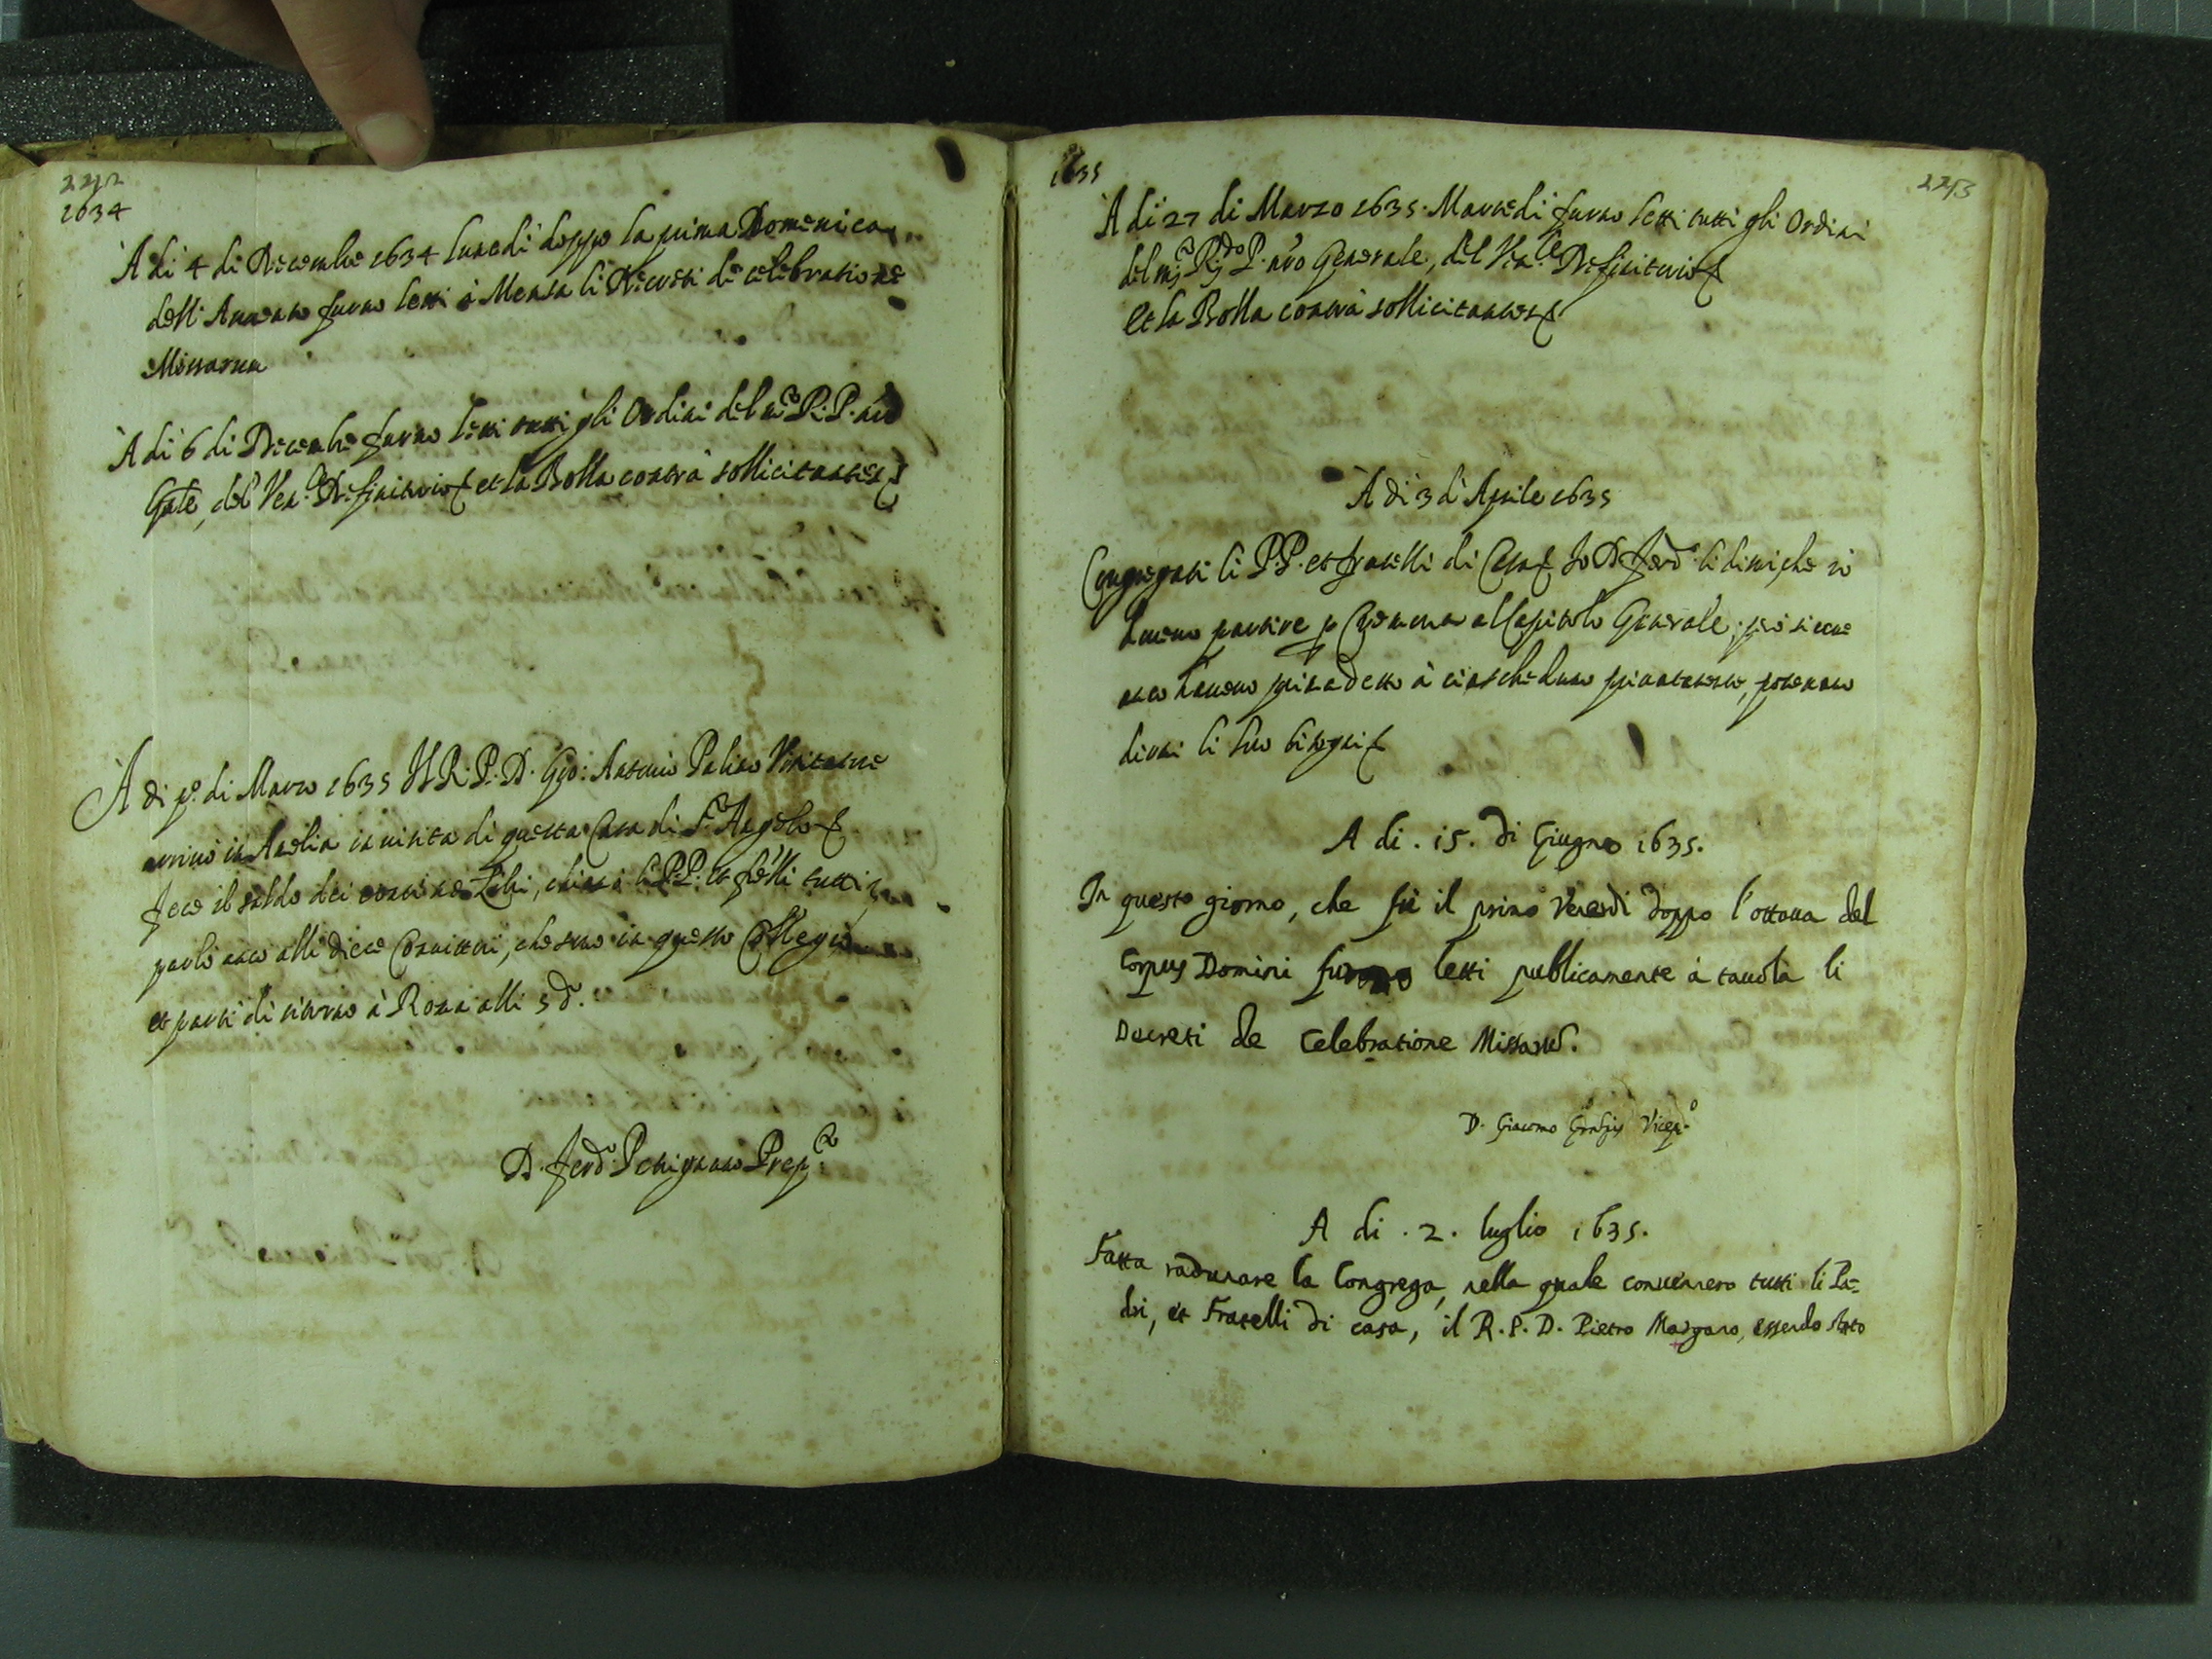 242
1634
A di 4 di Decembre 1634 lunedi doppo la prima Domenica
dell' Auuento furno letti à Mensa li Decreti de celebratione
Missarum
A di 6 di Decembre furno letti tutti gli Ordini del m. R. P. nro
Gnle, del Ven. Definitorio et la Bolla contra sollicitantes
A di po. di Marzo 1635 Il R. P. D. Gio: Antonio Palino Visitatore
arriuò in Amelia in visita di questa Casa di S. Angelo
fece il saldo dei libri, chiamò li PP. et fratelli tutti
parlò anco alli diece Conuittori, che sono in questo Collegio
et partì di ritorno à Roma alli 5 d.
D. Ferdo. Prepto.
1635
243
A di 27 di Marzo 1635. Martedi furno letti tutti gli Ordini
del m. Rdo P. nro Generale, del Ven.le Definitorio
et la Bolla contra sollicitantes
A di 3 d'Aprile 1635
Congregati li P.P. et fratelli di Casa Io D. Ferdo. li dissi, che si
doueua partire p Cremona al Capitolo Generale; però si come
anco haueuo prima detto à ciascheduno priuatamente, poteuano
dirmi li suo bisogni
A di . 15. di Giugno 1635.
In questo giorno, che fù il primo Venerdi doppo l'ottaua del
Corpus Domini furono letti publicamente à tauola li
Decreti de Celebratione Missarũ.
D. Giacomo Vicepo.
A di . 2. luglio 1635.
Fatta radunare la Congrega, nella quale conuennero tutti li Pa=
dri, et Fratelli di casa, il R. P. D. Pietro Margano, essendo stato